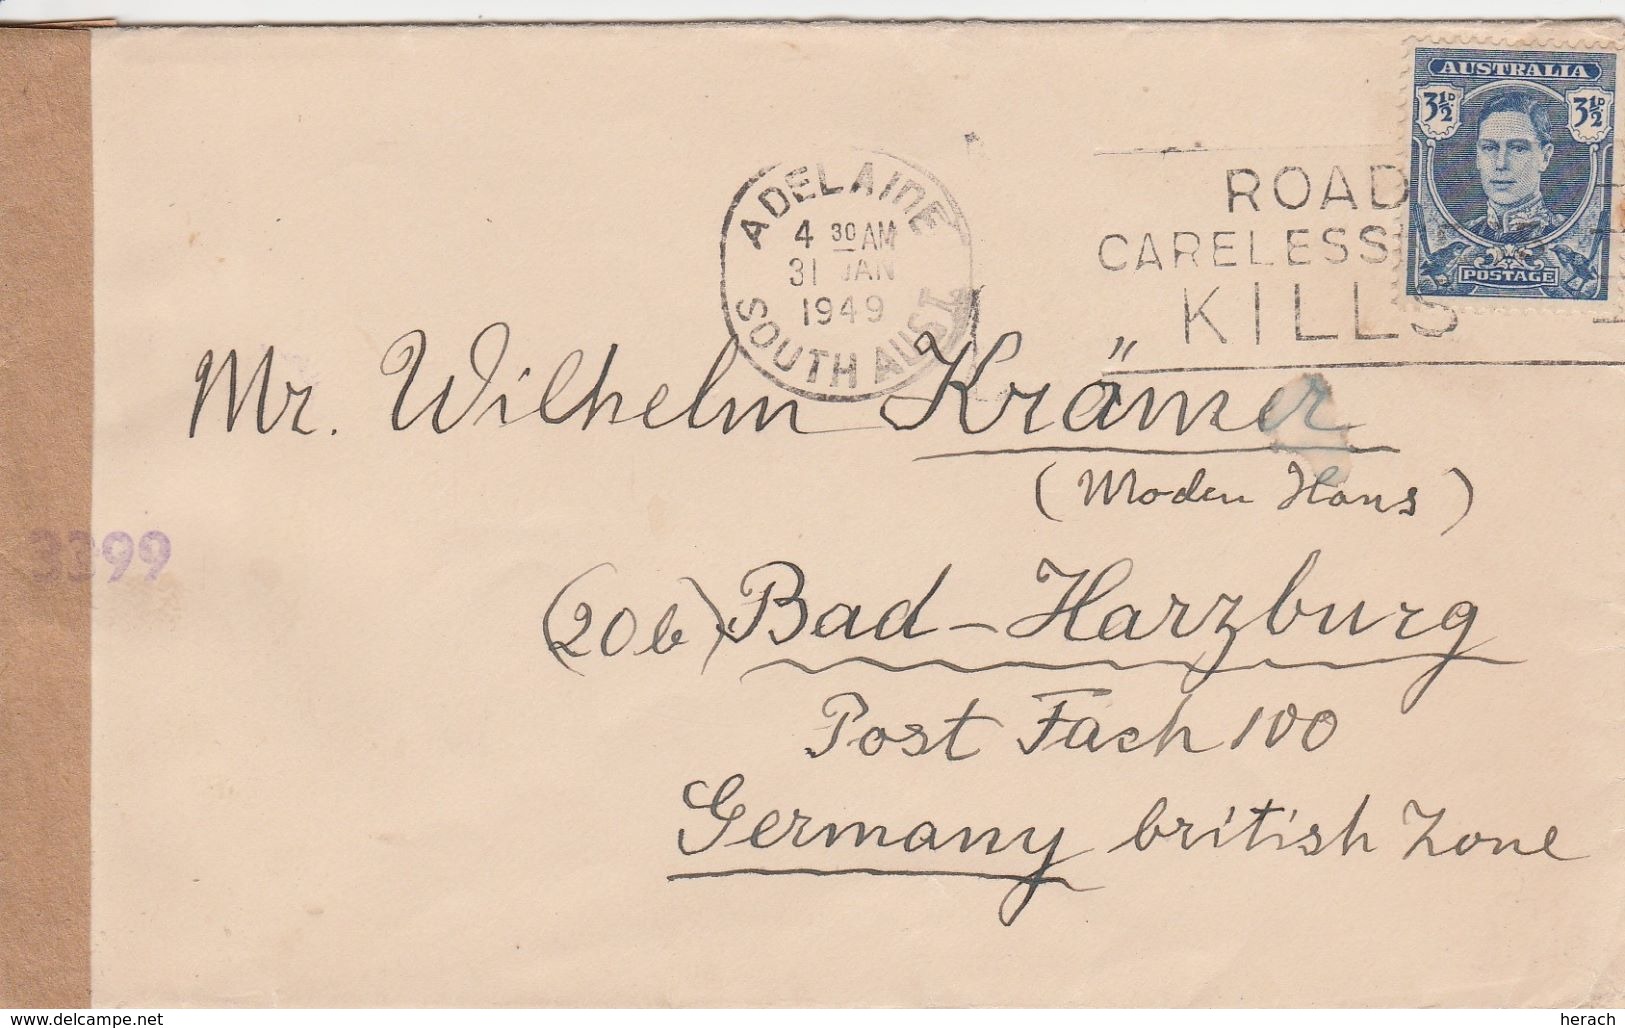 AUSTRALIA
3½D 3½D
POSTAGE
ADELAIDE
4 30 AM
31 JAN
1949
SOUTH AUST
ROAD
CARELESS
KILLS
Mr. Wilhelm Krämer
(Moden Haus)
3399
(20b) Bad-Harzburg
Post Fach 100
Germany british Zone
www.delcampe.net
herach